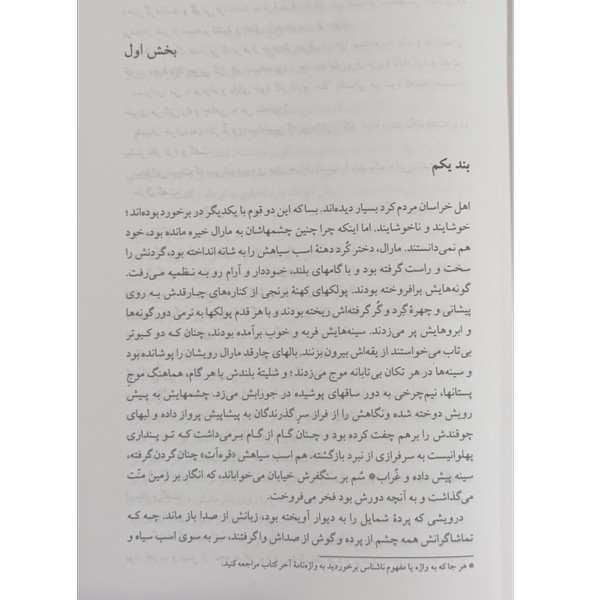 بخش اول
بند یکم
اهل خراسان مردم کرد بسیار دیده‌اند. بسا که این دو قوم با یکدیگر در برخورد بوده‌اند؛
خوشایند و ناخوشایند. اما اینکه چرا چنین چشمهاشان به مارال خیره مانده بود، خود
هم نمی‌دانستند. مارال، دختر کُرد دهنهٔ اسب سیاهش را به شانه انداخته بود، گردنش را
سخت و راست گرفته بود و با گامهای بلند، خوددار و آرام رو به نظمیه می‌رفت.
گونه‌هایش برافروخته بودند. پولکهای کهنهٔ برنجی از کناره‌های چارقدش به روی
پیشانی و چهرهٔ گِرد و گُر گرفته‌اش ریخته بودند و با هر قدم پولکها به نرمی دور گونه‌ها
و ابروهایش پر می‌زدند. سینه‌هایش فربه و خوب برآمده بودند، چنان که دو کبوتر
بی‌تاب می‌خواستند از یقه‌اش بیرون بزنند. بالهای چارقد مارال رویشان را پوشانده بود
و سینه‌ها در هر تکان بی‌تابانه موج می‌زدند؛ و شلیتهٔ بلندش با هر گام، هماهنگ موجِ
پستانها، نیم‌چرخی به دور ساقهای پوشیده در جورابش می‌زد. چشمهایش به پیش
رویش دوخته شده ونگاهش را از فراز سرِ گذرندگان به پیشاپیش پرواز داده و لبهای
چوقندش را برهم چفت کرده بود و چنان گام از گام برمی‌داشت که تو پنداری
پهلوانیست به سرفرازی از نبرد بازگشته. هم اسب سیاهش «قره‌آت» چنان گردن گرفته،
سینه پیش داده و غُراب* سُم بر سنگفرش خیابان می‌خواباند، که انگار بر زمین منّت
می‌گذاشت و به آنچه دورش بود فخر می‌فروخت.
درویشی که پردهٔ شمایل را به دیوار آویخته بود، زبانش از صدا باز ماند. چه که
تماشاگرانش همه چشم از پرده و گوش از صداش واگرفتند، سر به سوی اسب سیاه و
* هر جا که به واژه یا مفهوم ناشناس برخوردید به واژه‌نامهٔ آخر کتاب مراجعه کنید.